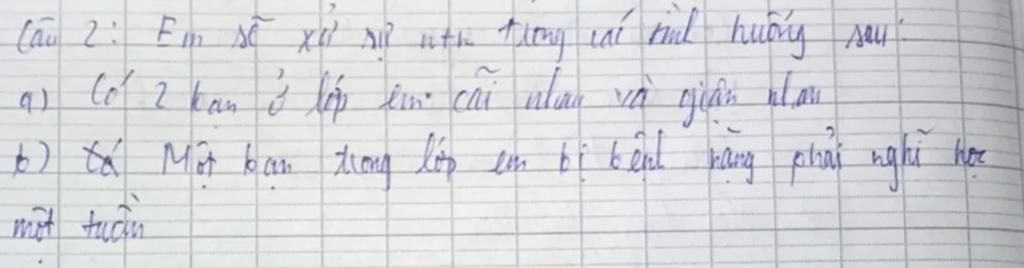 Câu 2: Em sẽ xử sự ntn trong các tình huống sau:
a) Có 2 bạn ở lớp em cãi nhau và giận nhau
b) Một bạn trong lớp em bị bệnh nặng phải nghĩ học
một tuần